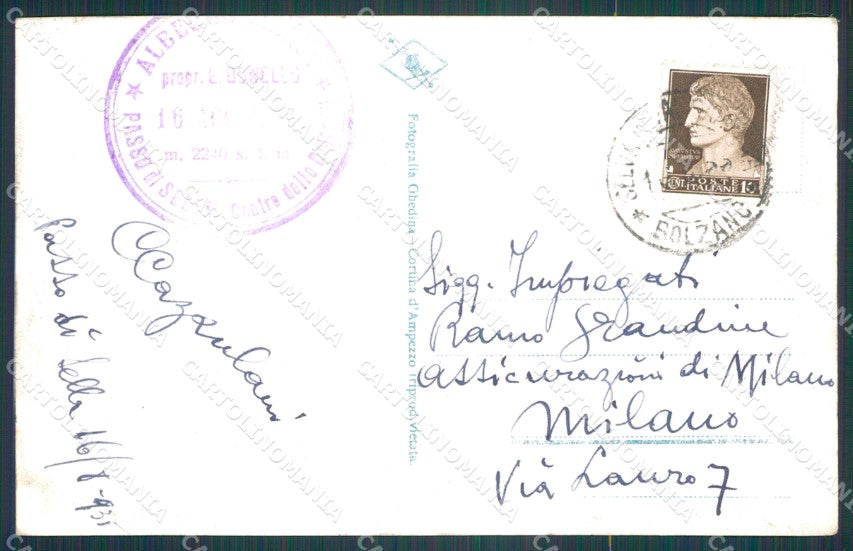 ALBE
propr. E.
16
m. 2240 s. l. m.
PASSO di SEL
Centro delle D
Passo di Sella 16/8-931
Fotografia Ghedina - Cortina d'Ampezzo (riprod. Vietata
POSTE
ITALIANE
CENT.
BOLZANO
Sigg. Impiegati
Ramo Grandine
Assicurazioni di Milano
Milano
Via Lauro 7
CARTOLINOMANIA